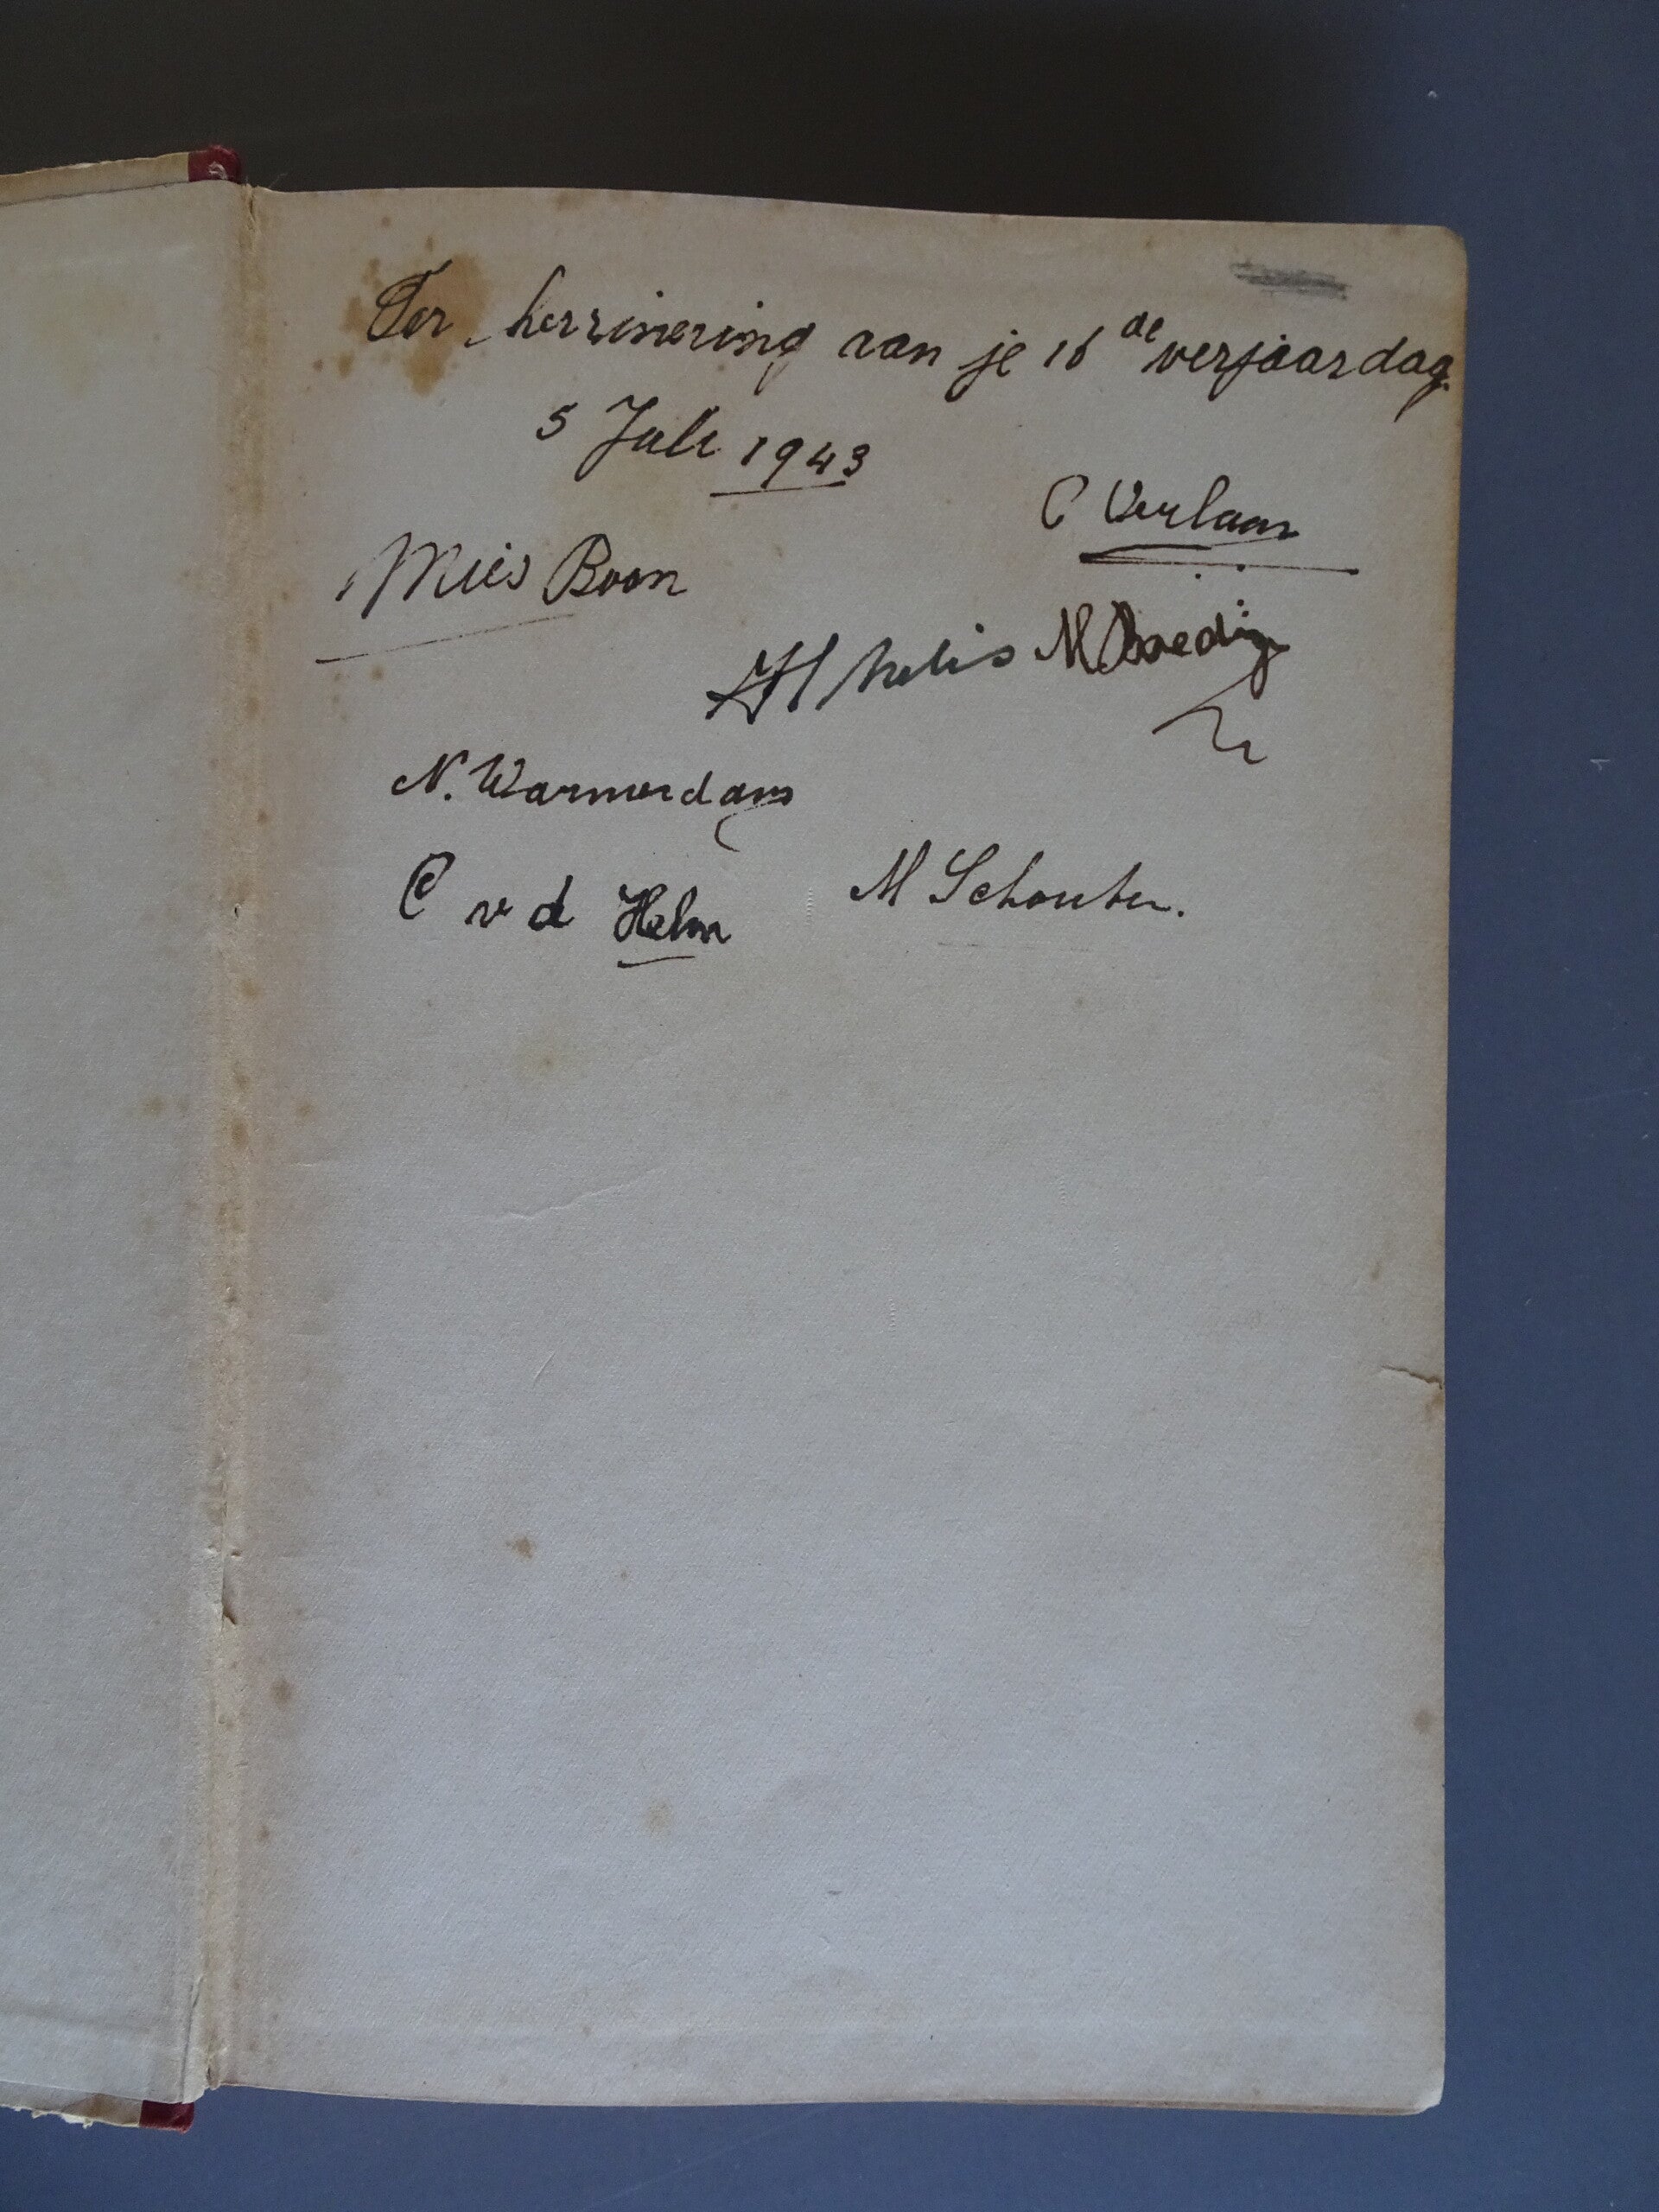 Ter herrinering aan je 16de verjaardag
5 Juli 1943
C Verlaan
Mies Boon
N. Warmerdam
C v d Helm
M Schouten.